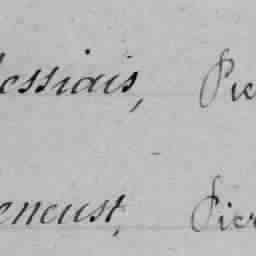 essiais, Pie
eneust, Pier